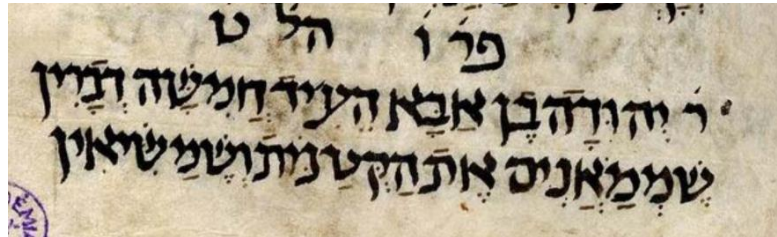 פר ו הל ט
ר יְהוּדָה בֶן אַבָּא הֵעִיד חֲמִשָּׁה דְבָרִין
שֶׁמְּמַאֲנִים אֶת הַקְּטַנּוֹת וְשֶׁמַּשִּׂיאִין